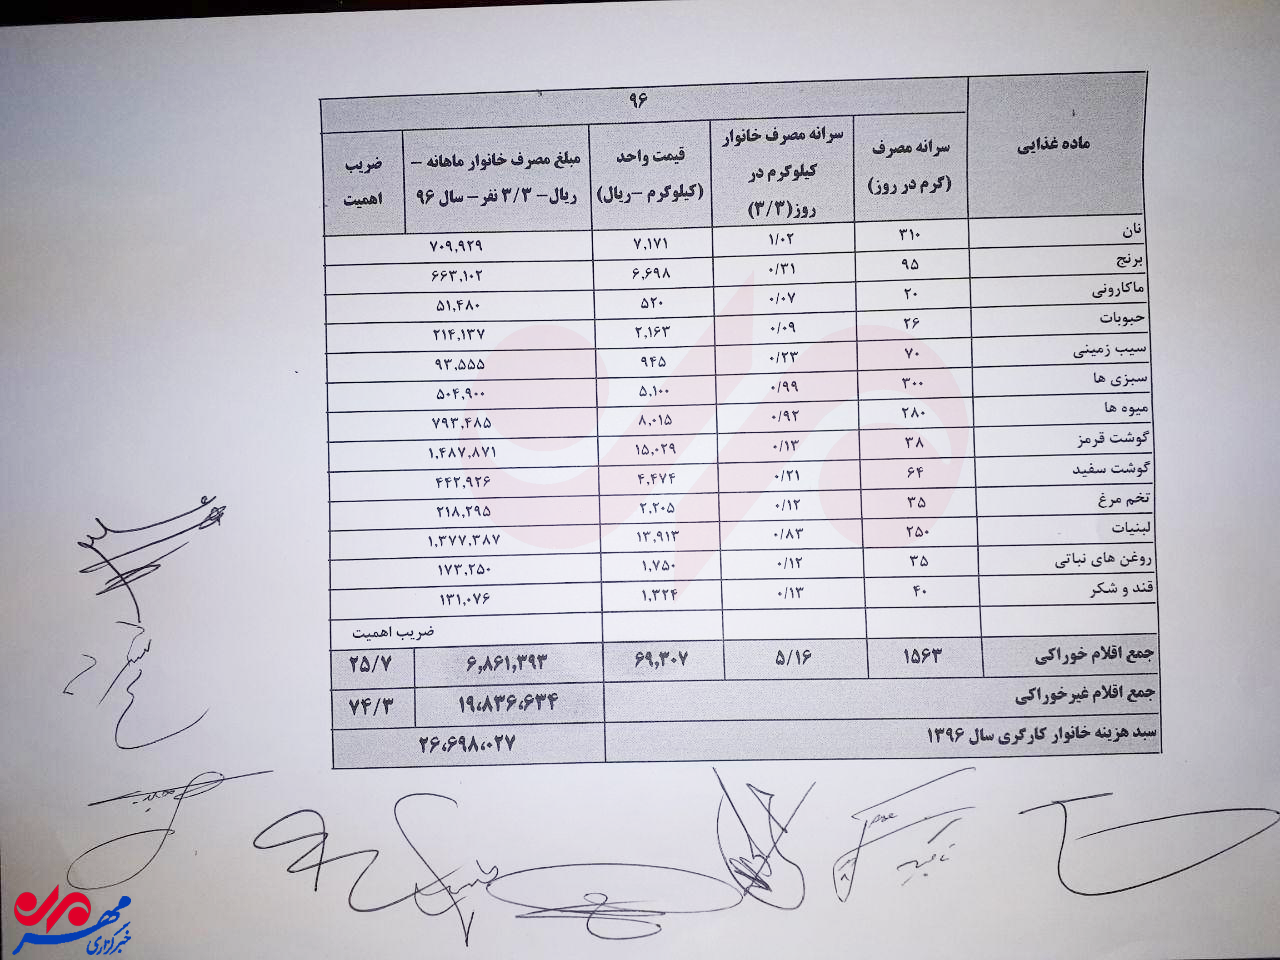 ۹۶
ماده غذایی
سرانه مصرف (گرم در روز)
سرانه مصرف خانوار کیلوگرم در روز(۳/۳)
قیمت واحد (کیلوگرم –ریال)
مبلغ مصرف خانوار ماهانه – ریال– ۳/۳ نفر– سال ۹۶
ضریب اهمیت
نان ۳۱۰ ۱/۰۲ ۷,۱۷۱ ۷۰۹,۹۲۹
برنج ۹۵ ۰/۳۱ ۶,۶۹۸ ۶۶۳,۱۰۲
ماکارونی ۲۰ ۰/۰۷ ۵۲۰ ۵۱,۴۸۰
حبوبات ۲۶ ۰/۰۹ ۲,۱۶۳ ۲۱۴,۱۳۷
سیب زمینی ۷۰ ۰/۲۳ ۹۴۵ ۹۳,۵۵۵
سبزی ها ۳۰۰ ۰/۹۹ ۵,۱۰۰ ۵۰۴,۹۰۰
میوه ها ۲۸۰ ۰/۹۲ ۸,۰۱۵ ۷۹۳,۴۸۵
گوشت قرمز ۳۸ ۰/۱۳ ۱۵,۰۲۹ ۱,۴۸۷,۸۷۱
گوشت سفید ۶۴ ۰/۲۱ ۴,۴۷۴ ۴۴۲,۹۲۶
تخم مرغ ۳۵ ۰/۱۲ ۲,۲۰۵ ۲۱۸,۲۹۵
لبنیات ۲۵۰ ۰/۸۳ ۱۳,۹۱۳ ۱,۳۷۷,۳۸۷
روغن های نباتی ۳۵ ۰/۱۲ ۱,۷۵۰ ۱۷۳,۲۵۰
قند و شکر ۴۰ ۰/۱۳ ۱,۳۲۴ ۱۳۱,۰۷۶
ضریب اهمیت
جمع اقلام خوراکی ۱۵۶۳ ۵/۱۶ ۶۹,۳۰۷ ۶,۸۶۱,۳۹۳ ۲۵/۷
جمع اقلام غیرخوراکی ۱۹,۸۳۶,۶۳۴ ۷۴/۳
سبد هزینه خانوار کارگری سال ۱۳۹۶ ۲۶,۶۹۸,۰۲۷
مهر
خبرگزاری